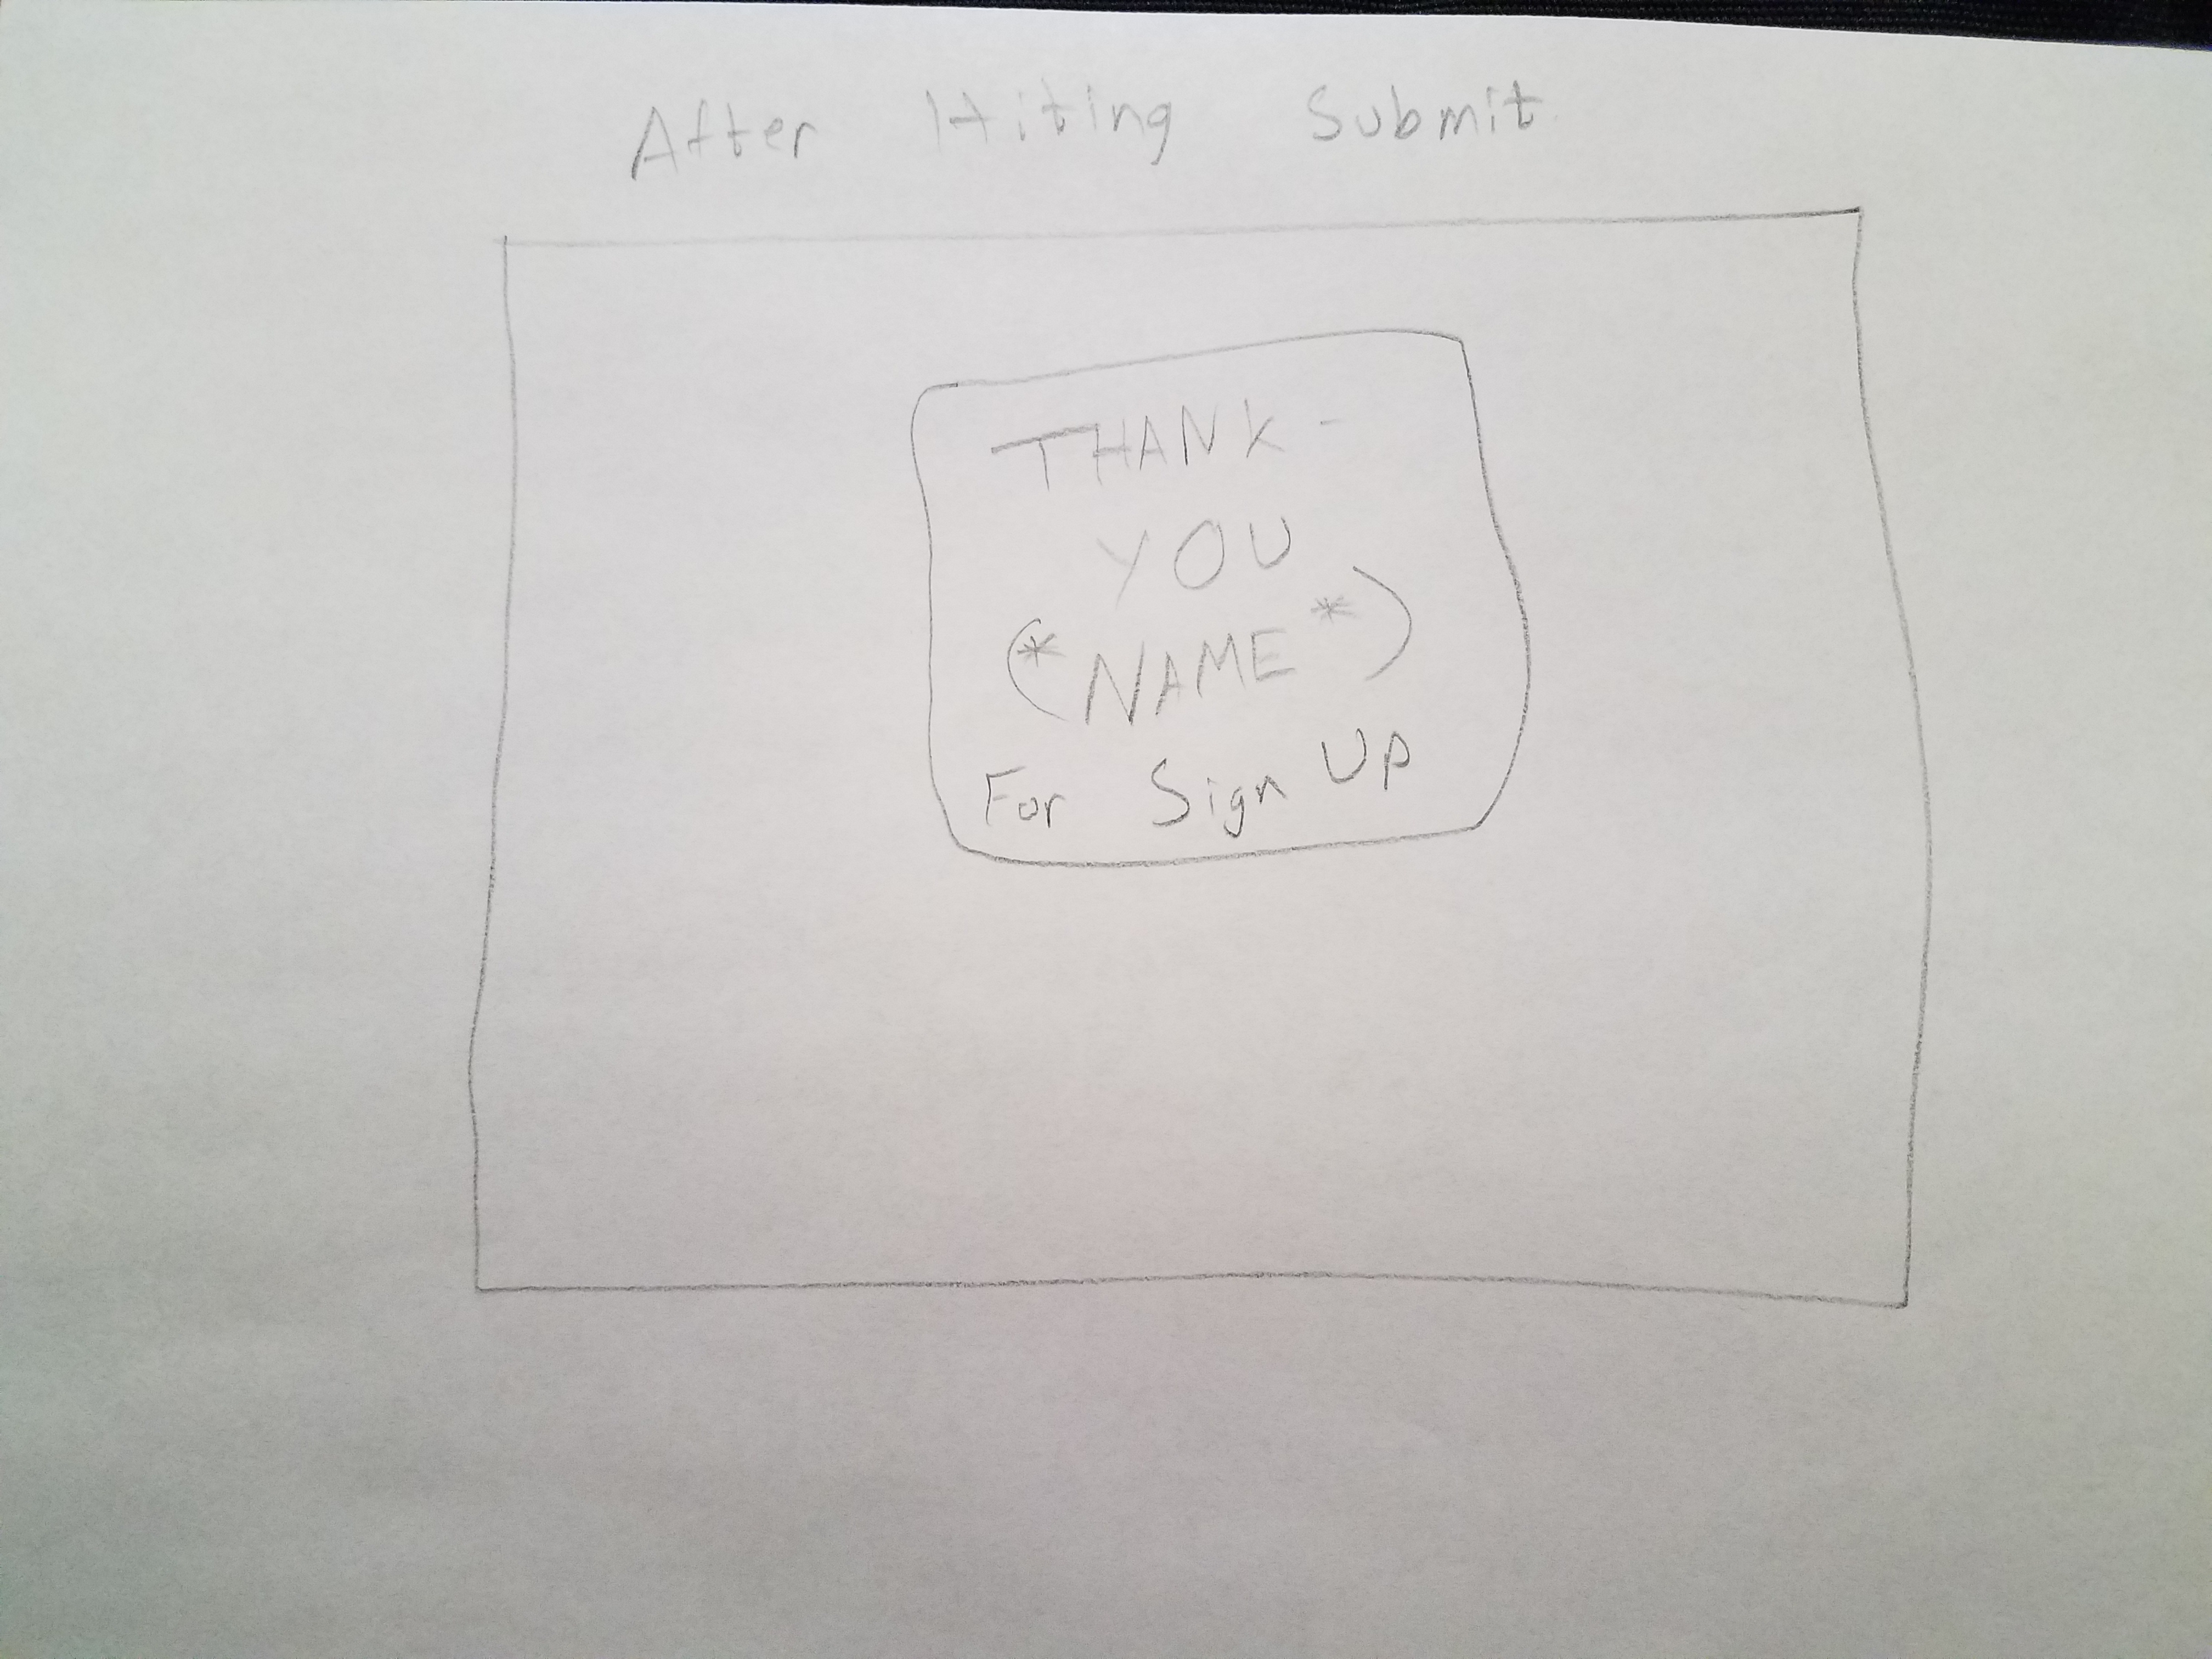 After Hitting Submit
THANK -
YOU
(* NAME *)
For Sign Up